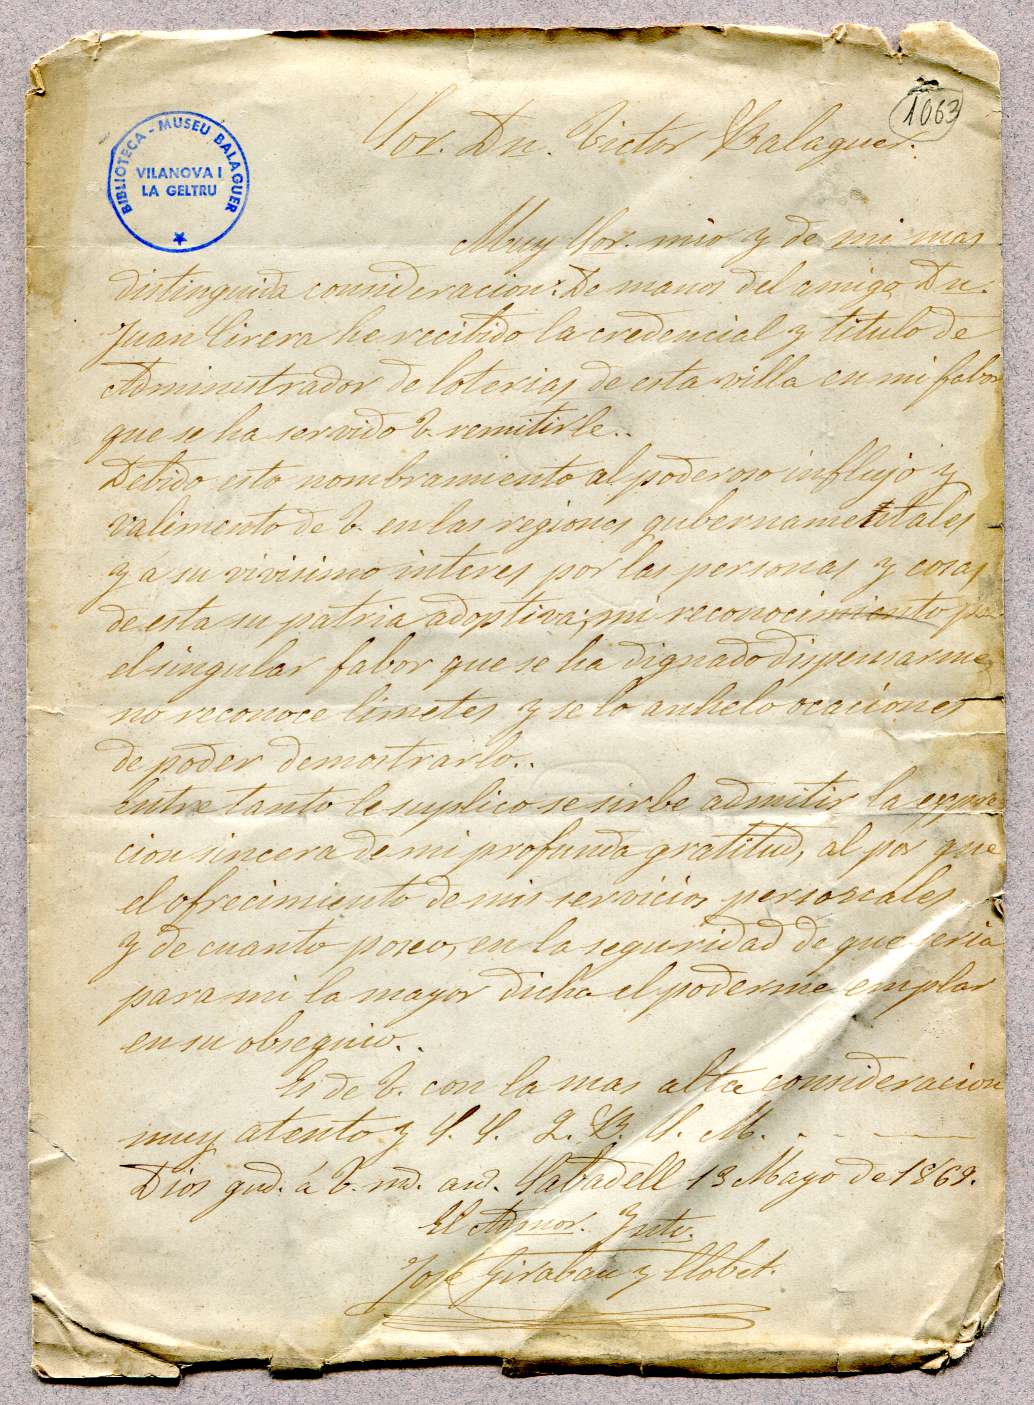 1063
BIBLIOTECA - MUSEU BALAGUER
VILANOVA I
LA GELTRU
Sor. Dn. Victor Balaguer.
Muy Sor. mio y de mi mas
distinguida consideracion: De manos del amigo Dn.
Juan Cirera he recibido la credencial y titulo de
Administrador de loterias de esta villa en mi fabor
que se ha servido V. remitirle..
Debido esto nombramiento al poderoso influjo y
valimento de V. en las regiones gubernamentales
y á su vivisimo interes por las personas y cosas
de esta su patria adoptiva; mi reconocimiento por
el singular fabor que se ha dignado dispensarme
no reconoce limetes y se lo anhelo ocaciones
de poder demostrarlo..
Entre tanto le suplico se sirbe admitir la expre
cion sincera de mi profunda gratitud, al par que
el ofrecimiento de mis servicios personales
y de cuanto poseo, en la seguridad de que seria
para mi la mayor dicha el poderme emplar
en su obsequio..
Es de V. con la mas alta consideracion
muy atento y S. S. Q. B. S. M.
Dios gud. á V. md. ad. Sabadell 13 Mayo de 1869.
El Admor. Into.
José Girabau y Llobet.